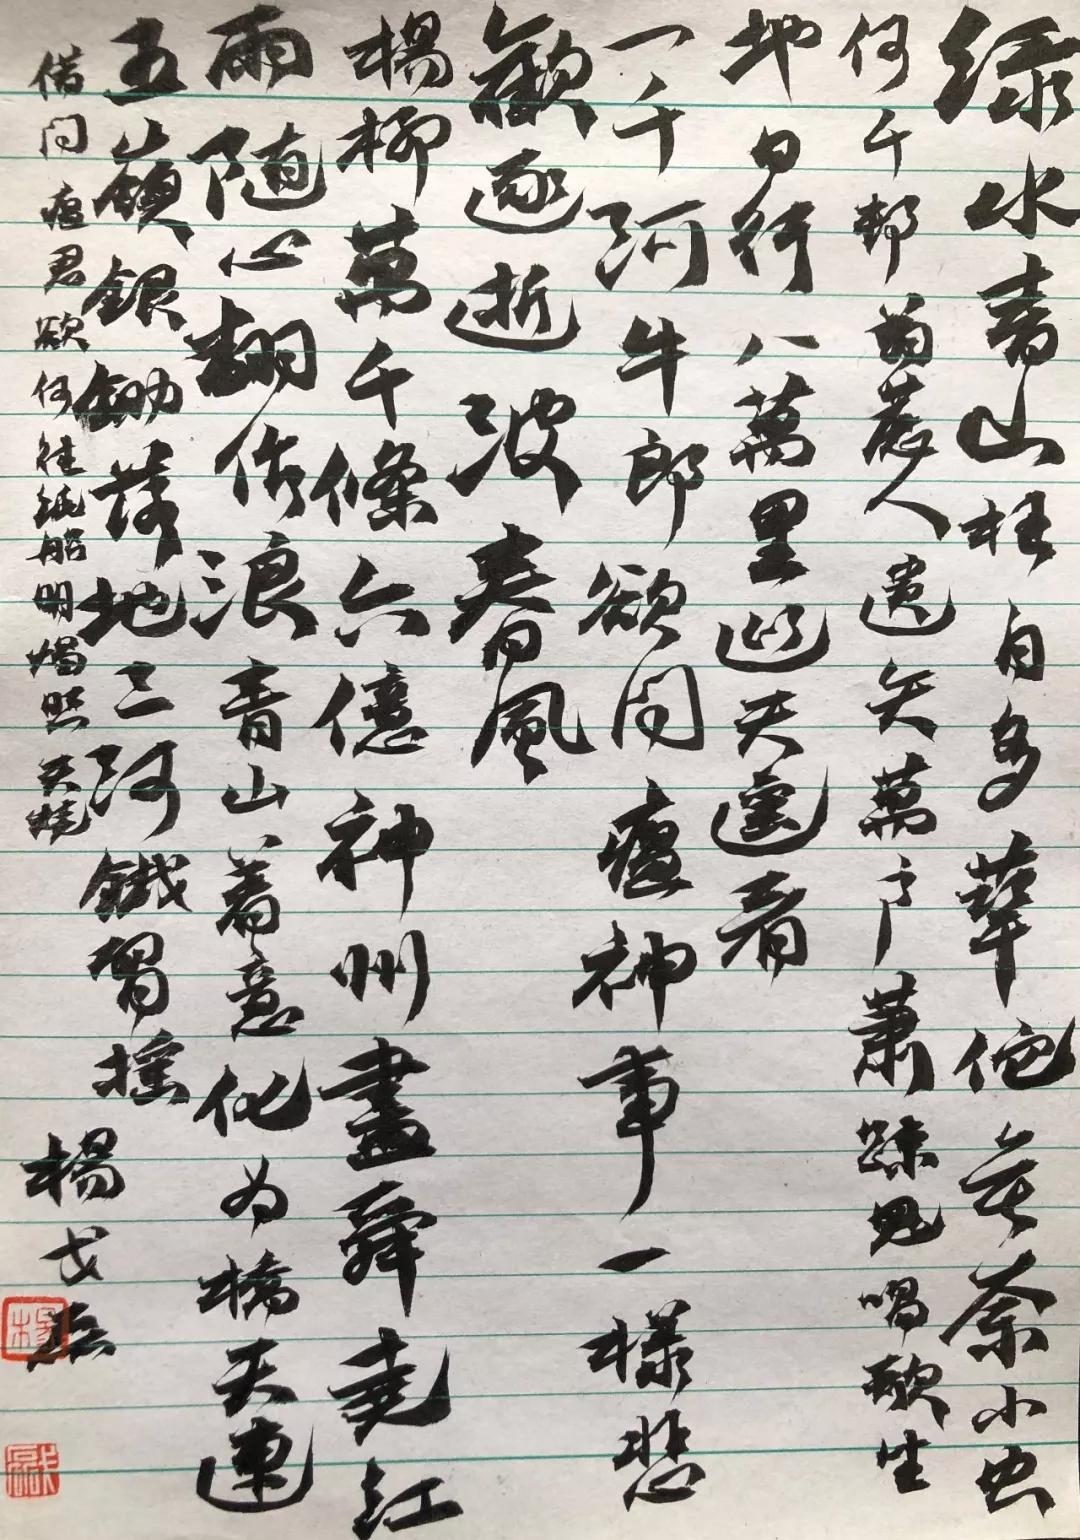 绿水青山枉自多華佗無奈小虫
何千邨薜荔人遗矢萬户萧疎鬼唱歌坐
地日行八萬里巡天遥看
一千河牛郎欲问瘟神事一樣悲
歡逐逝波春風
楊柳萬千條六億神州盡舜堯红
雨随心翻作浪青山着意化为橋天連
五嶺銀鋤落地三河鐵臂摇
借问瘟君欲何往纸船明燭照天烧
楊戈